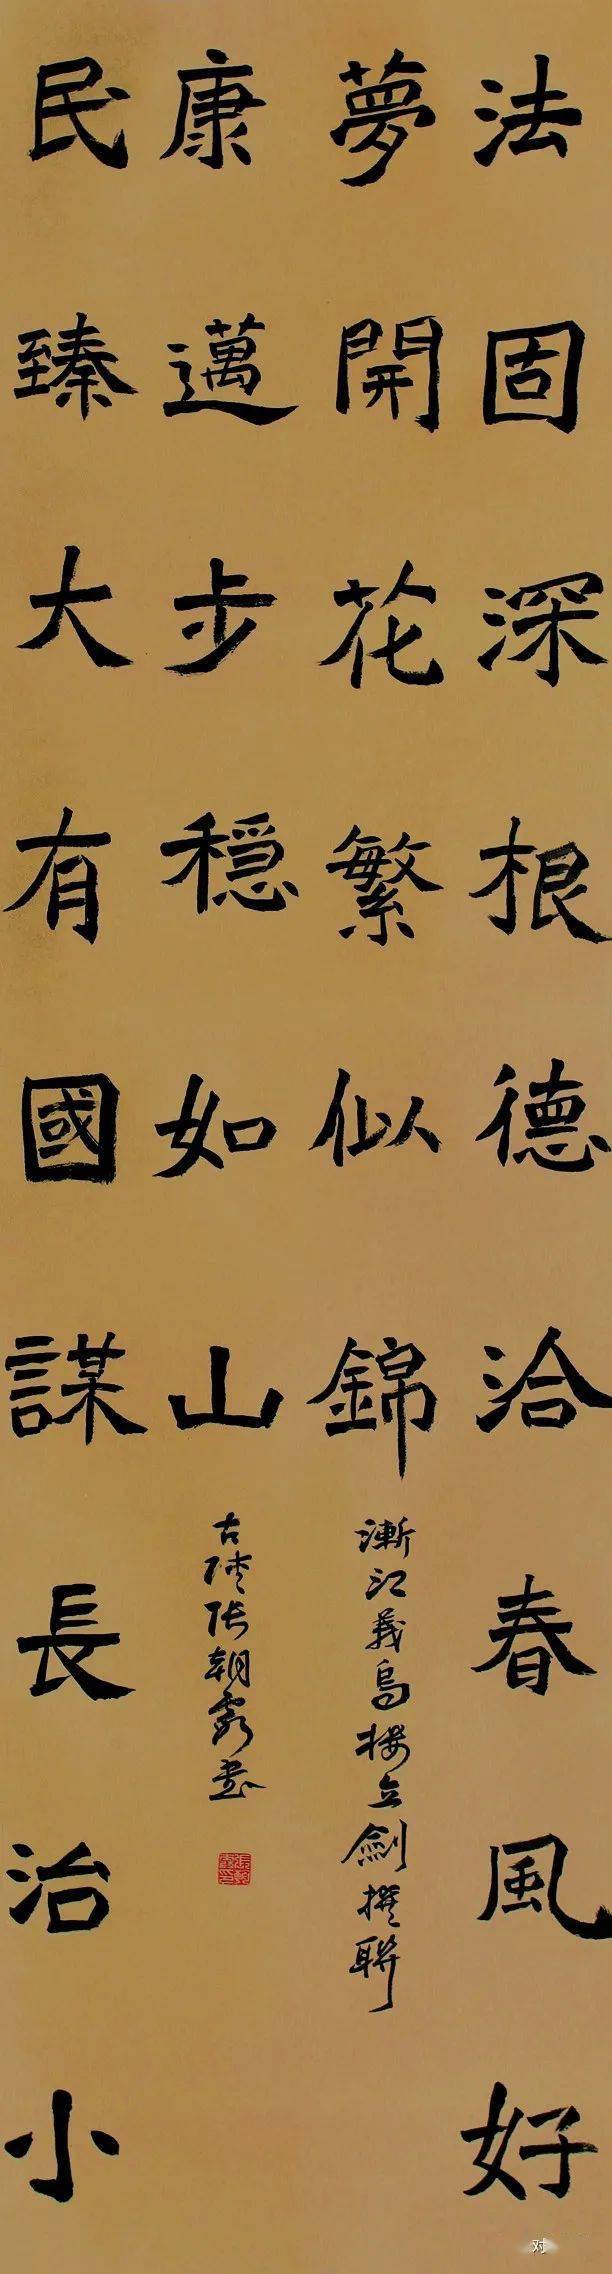 法固深根德洽春風好
夢開花繁似錦
漸江義烏樓立劍撰聯
民臻大有國謀長治小
康邁步穩如山
古陵張朝霞書
对